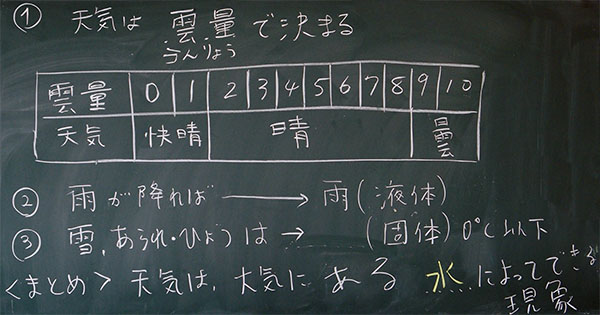 ① 天気は 雲量 で決まる
うんりょう
雲量 0 1 2 3 4 5 6 7 8 9 10
天気 快晴 晴 曇
② 雨が降れば → 雨(液体)
③ 雪,あられ・ひょうは → (固体)0℃以下
<まとめ> 天気は,大気にある 水によってできる
現象